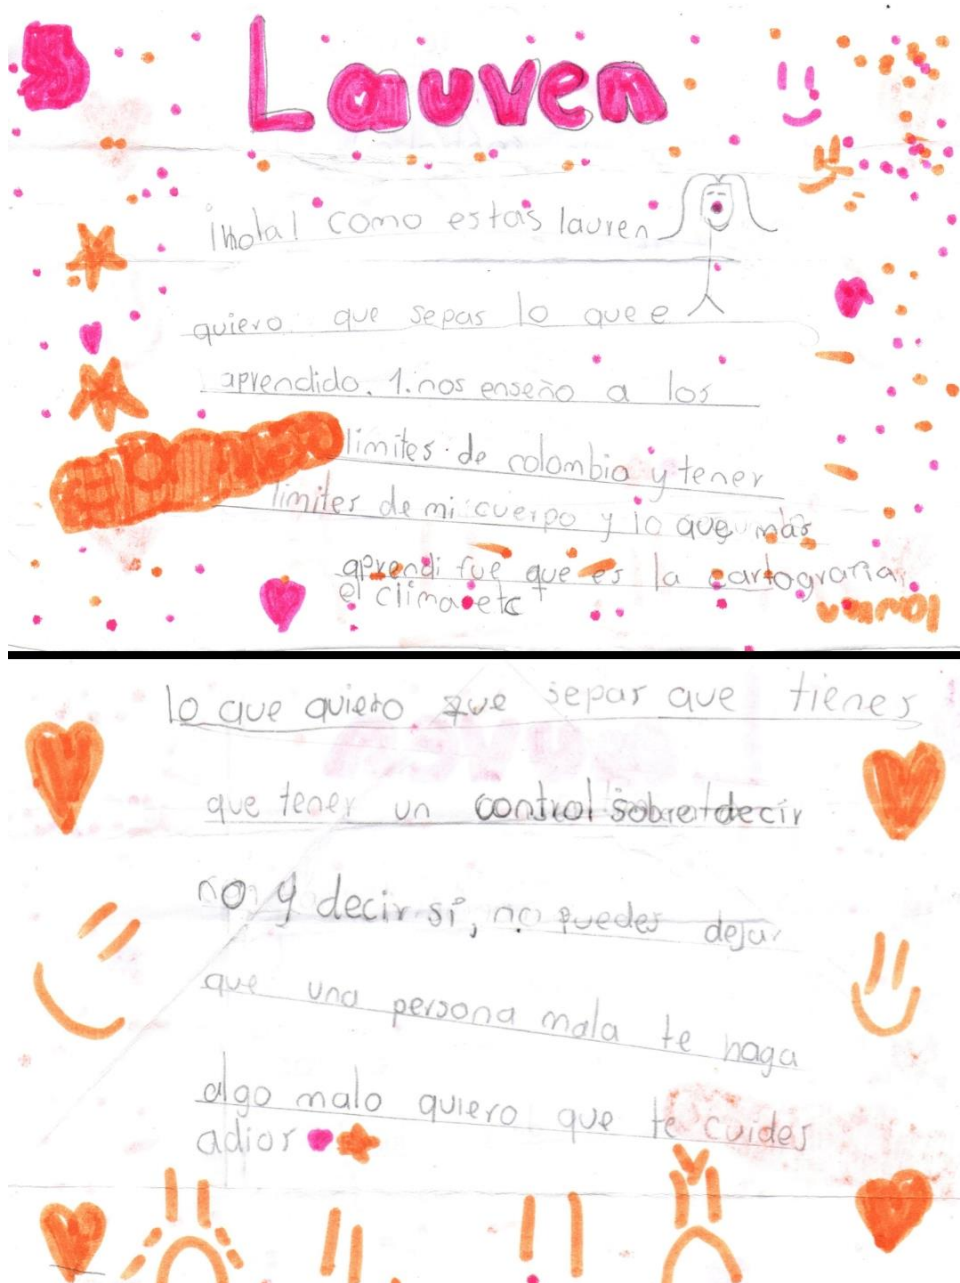 Lauren
¡Hola! como estas lauren
quiero que sepas lo que e
aprendido. 1. nos enseño a los
limites de colombia y tener
limites de mi cuerpo y lo que mas
aprendi fue que es la cartografia,
el clima etc
lauren
lo que quiero que sepas que tienes
que tener un control sobre decir
no y decir si, no puedes dejar
que una persona mala te haga
algo malo quiero que te cuides
adios